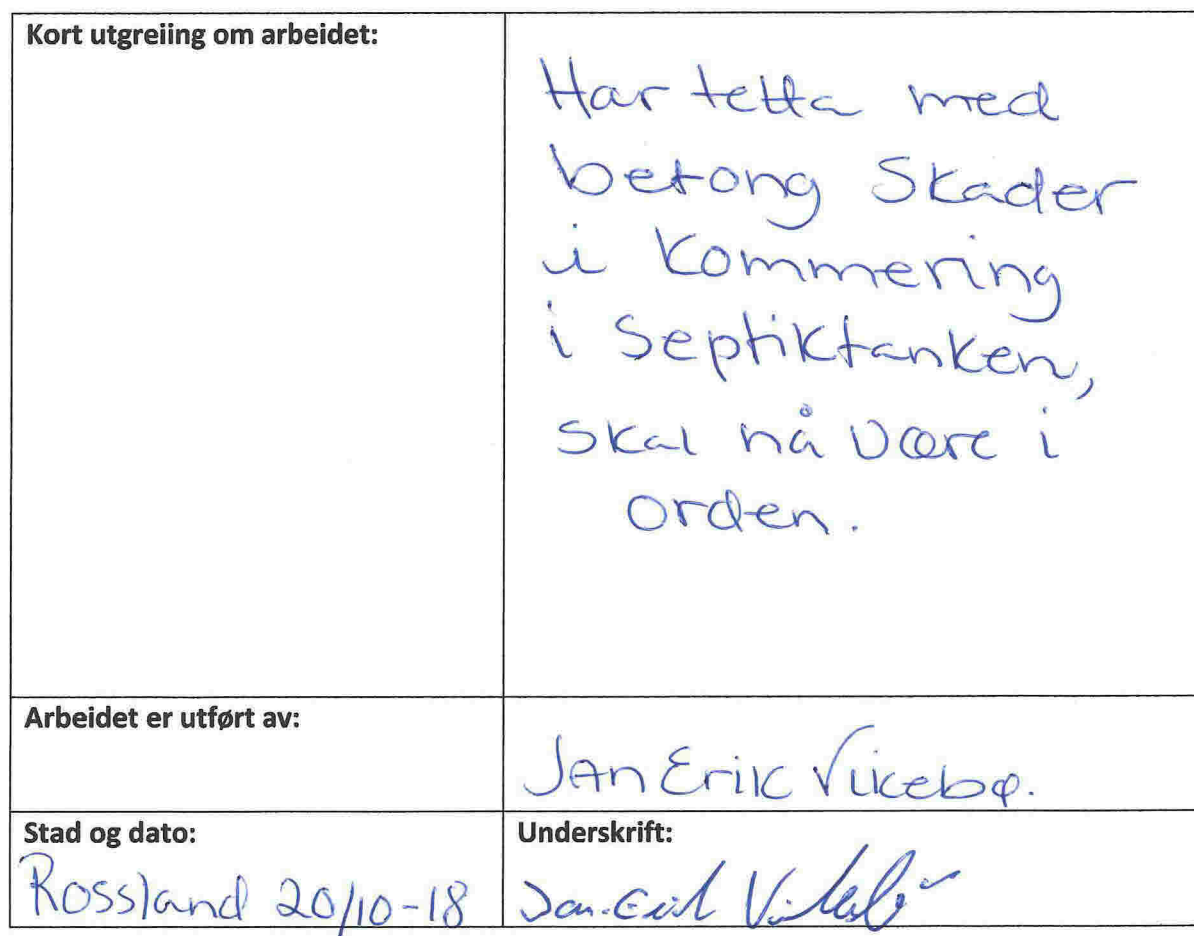 Kort utgreiing om arbeidet:
Har tetta med
betong Skader
i Kommering
i Septiktanken,
skal nå være i
orden.
Arbeidet er utført av:
Jan Erik Vikebø.
Stad og dato:
Rossland 20/10-18
Underskrift:
Jan-Erik Vikebø